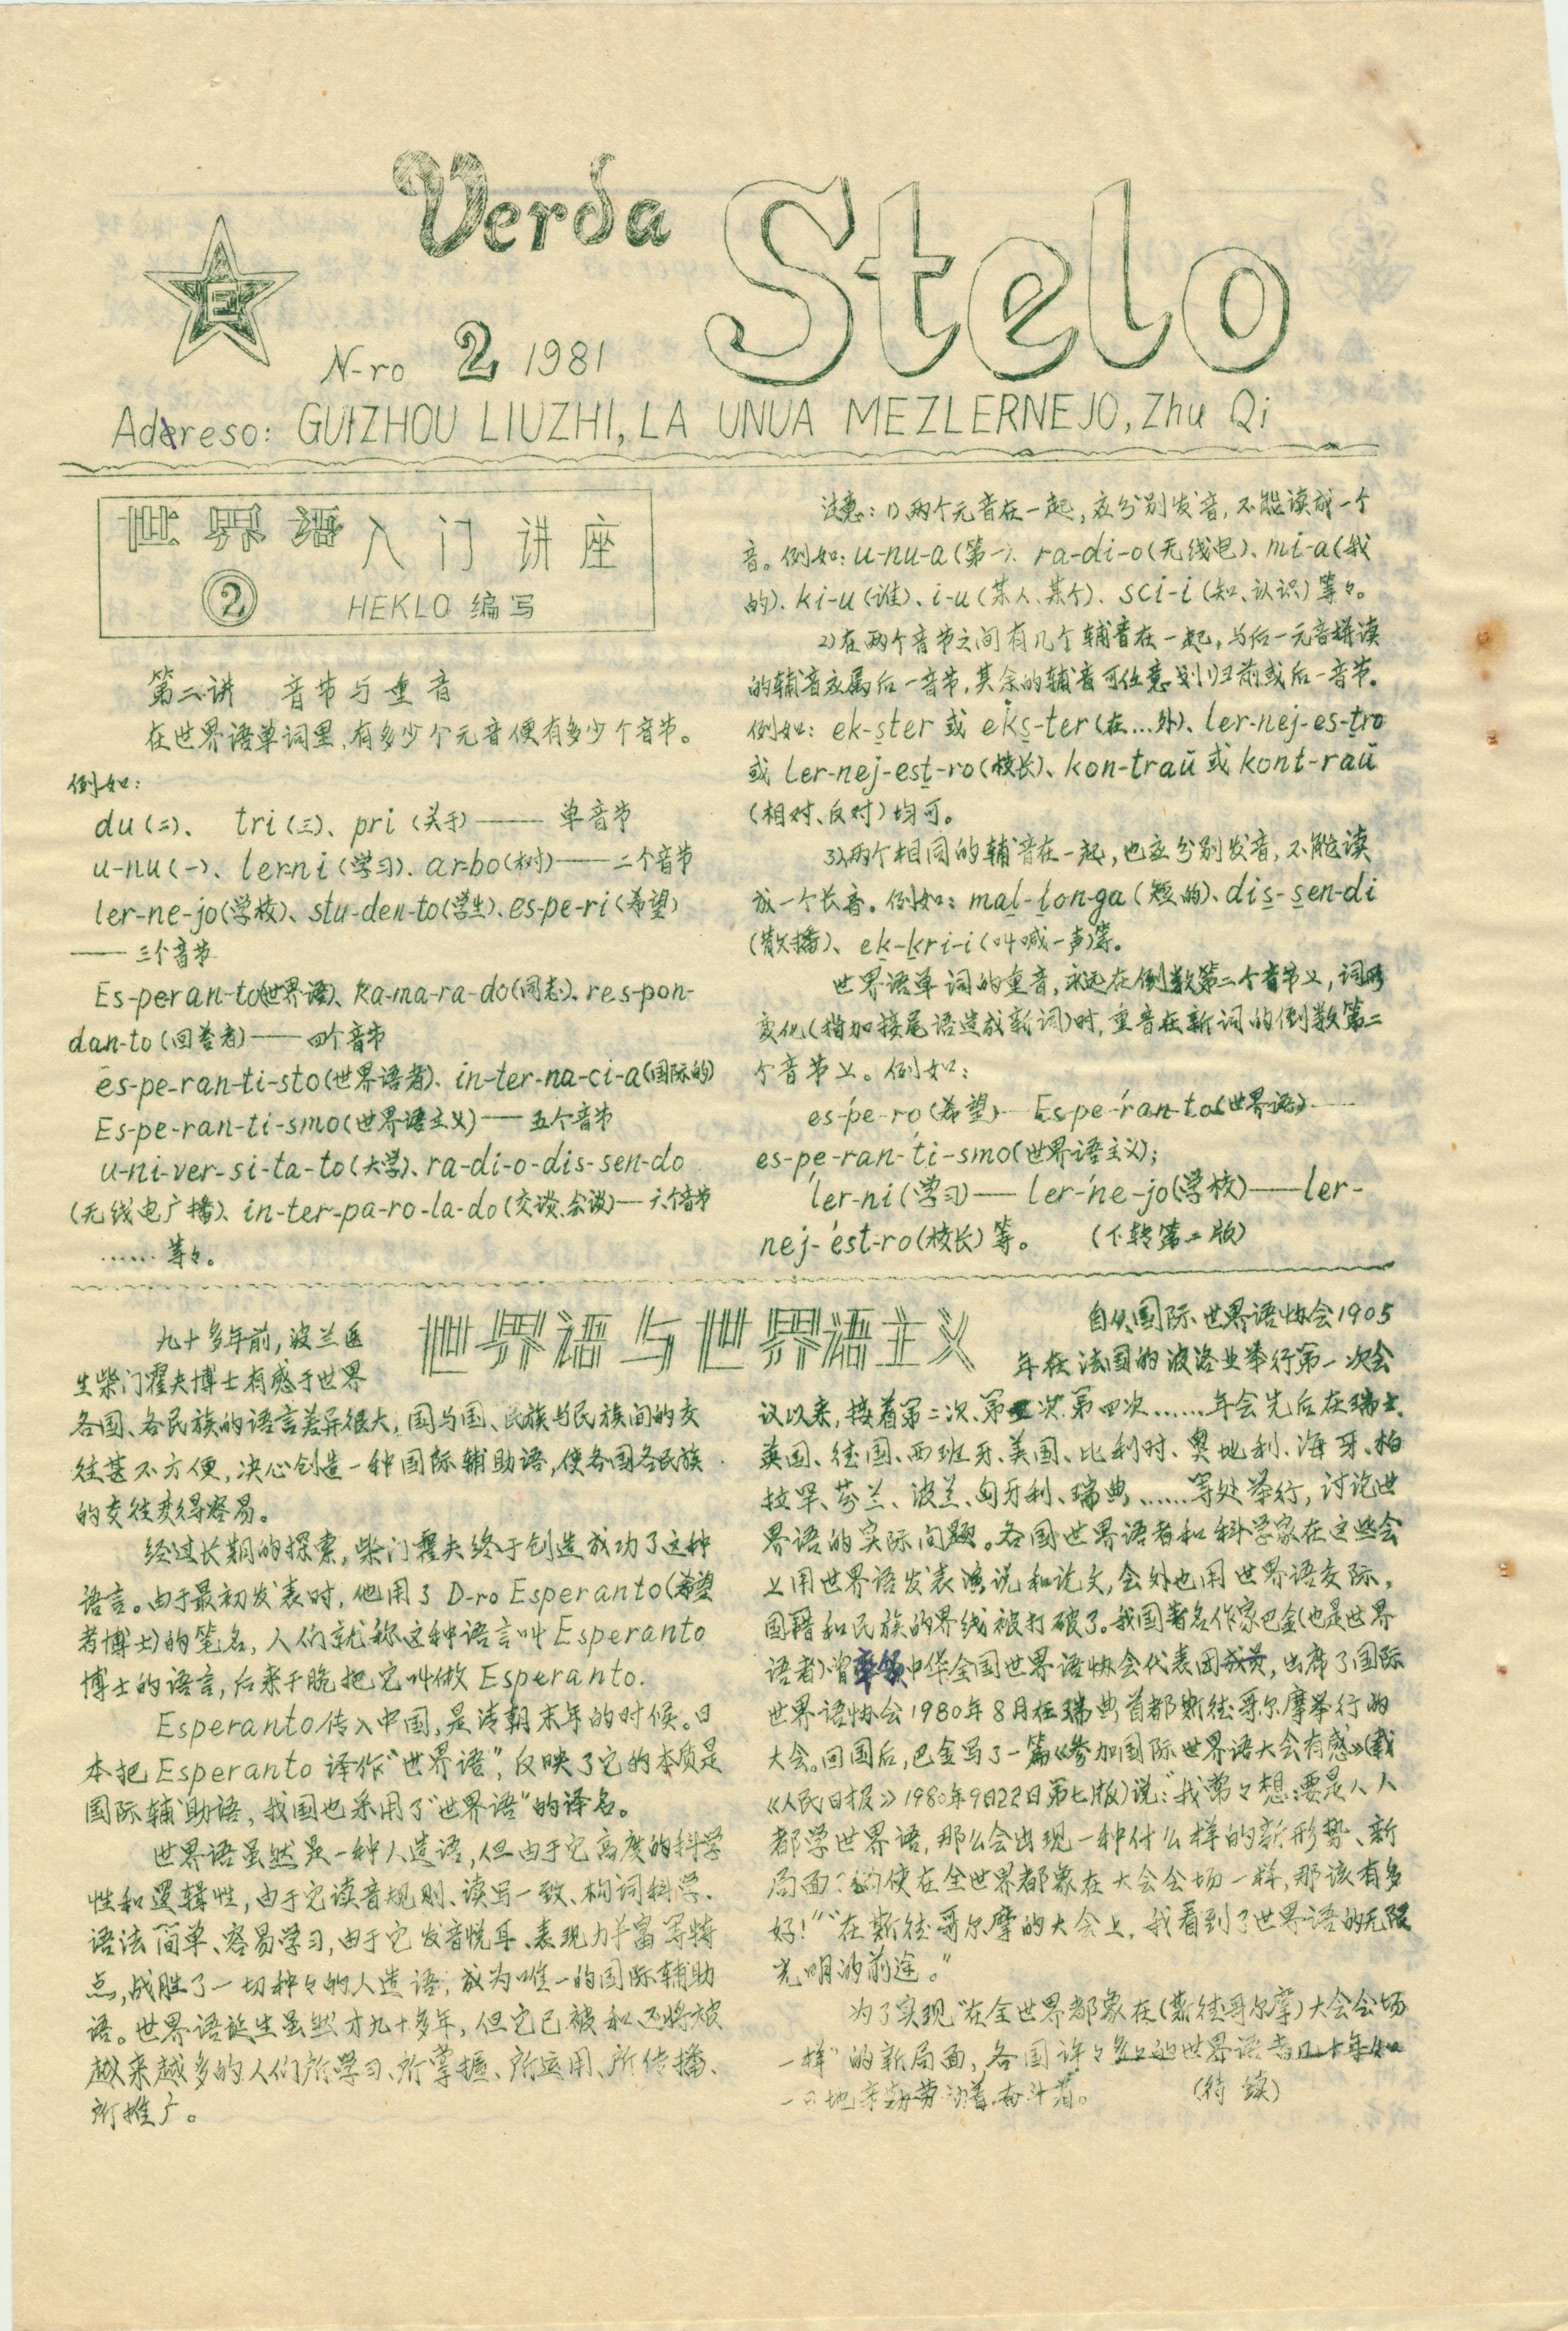 Verda Stelo
E
N-ro 2 1981
Adereso: GUIZHOU LIUZHI, LA UNUA MEZLERNEJO, Zhu Qi
世界语入门讲座
② HEKLO 编写
第二讲 音节与重音
在世界语单词里,有多少个元音便有多少个音节。
例如:
du(二)、 tri(三)、pri(关于)—— 单音节
u-nu(一)、ler-ni(学习)、ar-bo(树)——二个音节
ler-ne-jo(学校)、stu-den-to(学生)、es-pe-ri(希望)
——三个音节
Es-peran-to(世界语)、Ka-ma-ra-do(同志)、res-pon-
dan-to(回答者)——四个音节
es-pe-ran-ti-sto(世界语者)、in-ter-na-ci-a(国际的)
Es-pe-ran-ti-smo(世界语主义)——五个音节
u-ni-ver-si-ta-to(大学)、ra-di-o-dis-sen-do
(无线电广播)、in-ter-pa-ro-la-do(交谈、会谈)—六个音节
……等々。
注意:1)、两个元音在一起,应分别发音,不能读成一个
音。例如:u-nu-a(第一)、ra-di-o(无线电)、mi-a(我
的)、ki-u(谁)、i-u(某人、某个)、sci-i(知、认识)等々。
2)在两个音节之间有几个辅音在一起,与后一元音拼读
的辅音应属后一音节,其余的辅音可任意划归前或后一音节。
例如:ek-ster 或 eks-ter(在…外)、ler-nej-es-tro
或 ler-nej-est-ro(校长)、kon-traŭ 或 kont-raŭ
(相对、反对)均可。
3)、两个相同的辅音在一起,也应分别发音,不能读
成一个长音。例如:mal-lon-ga(短的)、dis-sen-di
(散播)、ek-kri-i(叫喊一声)等。
世界语单词的重音,永远在倒数第二个音节上,词形
变化(指加接尾语造成新词)时,重音在新词的倒数第二
个音节上。例如:
es-'pe-ro(希望)—Es-pe-'ran-to(世界语)——
es-pe-ran-'ti-smo(世界语主义);
'ler-ni(学习)—ler-'ne-jo(学校)——ler-
nej-'est-ro(校长)等。 (下转第二版)
世界语与世界语主义
九十多年前,波兰医
生柴门霍夫博士有感于世界
各国、各民族的语言差异很大,国与国、民族与民族间的交
往甚不方便,决心创造一种国际辅助语,使各国各民族
的交往变得容易。
经过长期的探索,柴门霍夫终于创造成功了这种
语言。由于最初发表时,他用了 D-ro Esperanto(希望
者博士)的笔名,人们就称这种语言叫 Esperanto
博士的语言,后来干脆把它叫做 Esperanto.
Esperanto传入中国,是清朝末年的时候。日
本把 Esperanto 译作“世界语”,反映了它的本质是
国际辅助语,我国也采用了“世界语”的译名。
世界语虽然是一种人造语,但由于它高度的科学
性和逻辑性,由于它读音规则、读写一致、构词科学、
语法简单、容易学习,由于它发音悦耳、表现力丰富等特
点,战胜了一切种々的人造语,成为唯一的国际辅助
语。世界语诞生虽然才九十多年,但它已被和还将被
越来越多的人们所学习、所掌握、所运用、所传播、
所推广。
自从国际世界语协会1905
年在法国的波洛业举行第一次会
议以来,接着第二次、第三次、第四次……年会先后在瑞士、
英国、德国、西班牙、美国、比利时、奥地利、海牙、柏
拉罕、芬兰、波兰、匈牙利、瑞典,……等处举行,讨论世
界语的实际问题。各国世界语者和科学家在这些会
上用世界语发表演说和论文,会外也用世界语交际,
国籍和民族的界线被打破了。我国著名作家巴金(也是世界
语者)曾率领中华全国世界语协会代表团成员,出席了国际
世界语协会1980年8月在瑞典首都斯德哥尔摩举行的
大会。回国后,巴金写了一篇《参加国际世界语大会有感》(载
《人民日报》1980年9日22日第七版)说:“我常々想:要是人人
都学世界语,那么会出现一种什么样的新形势、新
局面?使在全世界都象在大会会场一样,那该有多
好!”“在斯德哥尔摩的大会上,我看到了世界语的无限
光明的前途。”
为了实现“在全世界都象在(斯德哥尔摩)大会会场
一样”的新局面,各国许々多々的世界语者几十年如
一日地辛勤劳动着,奋斗着。 (待续)